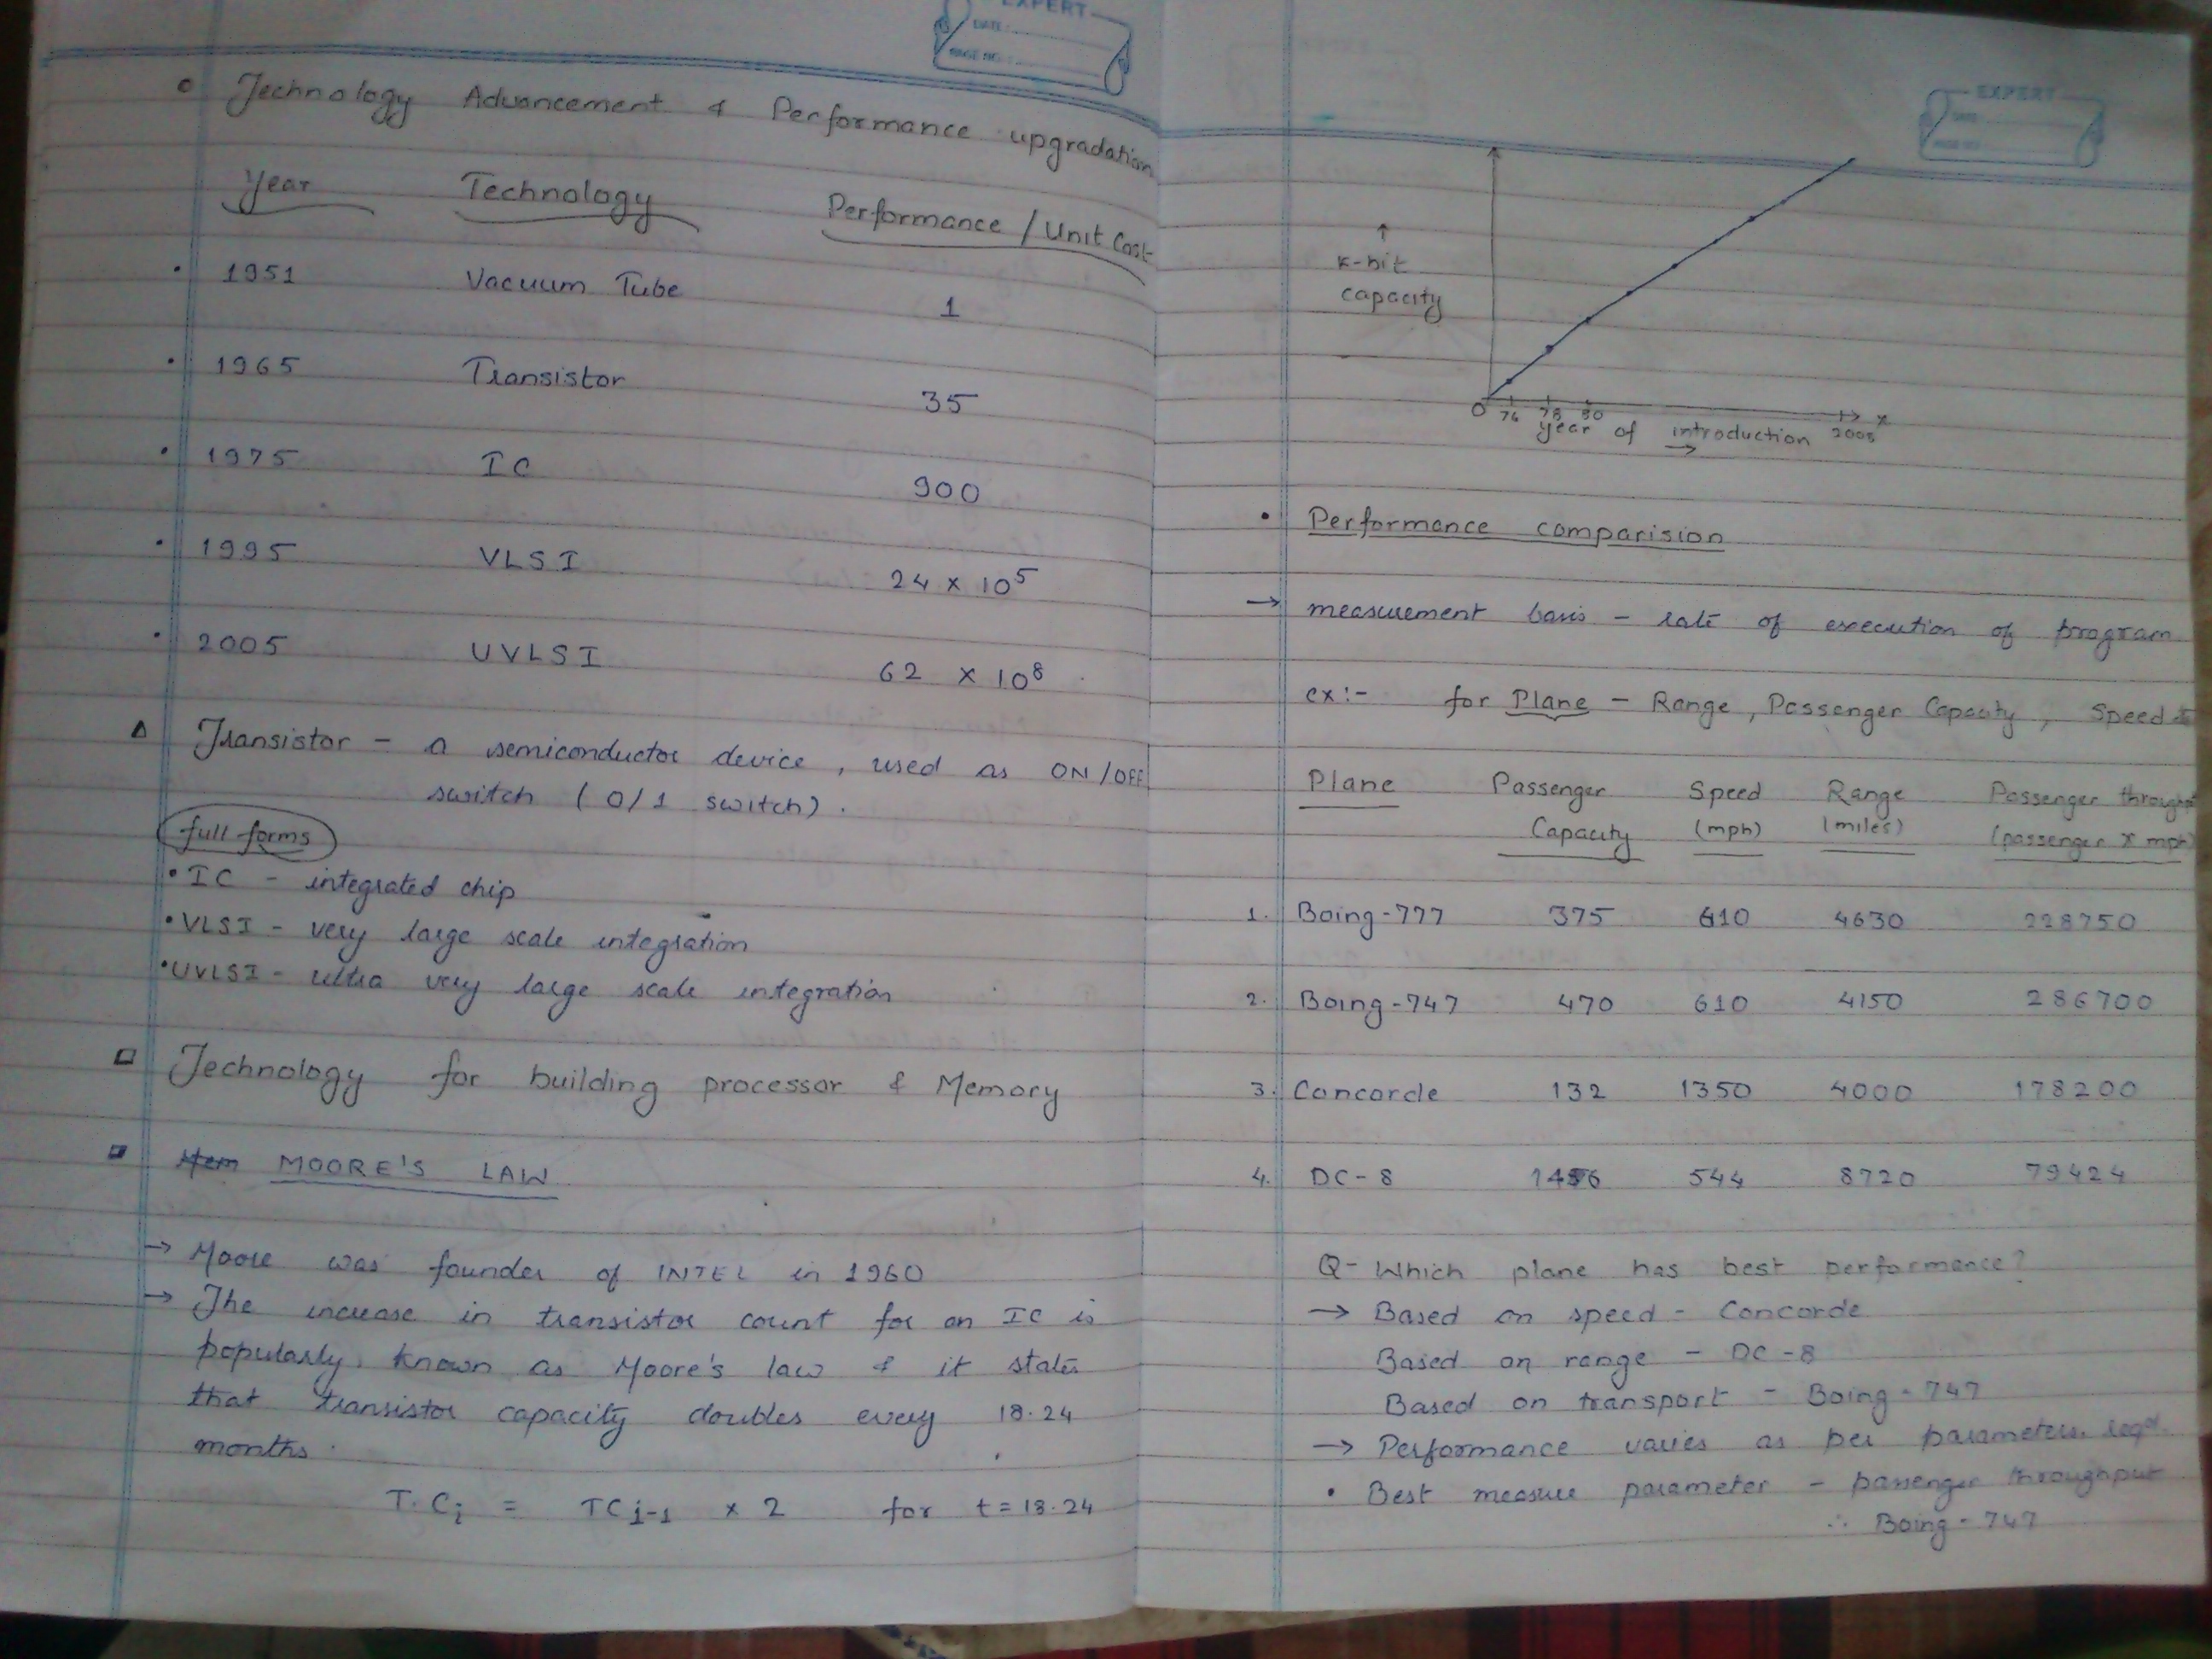 EXPERT
DATE:
PAGE NO.:
Technology Advancement & Performance upgradation
Year Technology Performance / Unit Cost
1951 Vacuum Tube 1
1965 Transistor 35
1975 IC 900
1995 VLSI 24 x 10⁵
2005 UVLSI 62 x 10⁸
Transistor - a semiconductor device, used as ON/OFF
switch (0/1 switch).
full forms
• IC - integrated chip
• VLSI - very large scale integration
• UVLSI - ultra very large scale integration
Technology for building processor & Memory
MOORE'S LAW
→ Moore was founder of INTEL in 1960
→ The increase in transistor count for an IC is
popularly known as Moore's law & it states
that transistor capacity doubles every 18.24
months.
T.Cᵢ = TCᵢ₋₁ x 2 for t = 18.24
EXPERT
DATE
PAGE NO.
↑
K-bit
capacity
0 76 78 80 2005 x
year of introduction
→
• Performance comparision
→ measurement basis - rate of execution of program
ex:- for Plane - Range, Passenger Capacity, Speed
Plane Passenger Speed Range Passenger
Capacity (mph) (miles) (passenger x mph)
1. Boing-777 375 610 4630 228750
2. Boing-747 470 610 4150 286700
3. Concorde 132 1350 4000 178200
4. DC-8 146 544 8720 79424
Q- Which plane has best performance?
→ Based on speed - Concorde
Based on range - DC-8
Based on transport - Boing-747
→ Performance varies as per parameters reqd.
• Best measure parameter - passenger throughput
∴ Boing-747